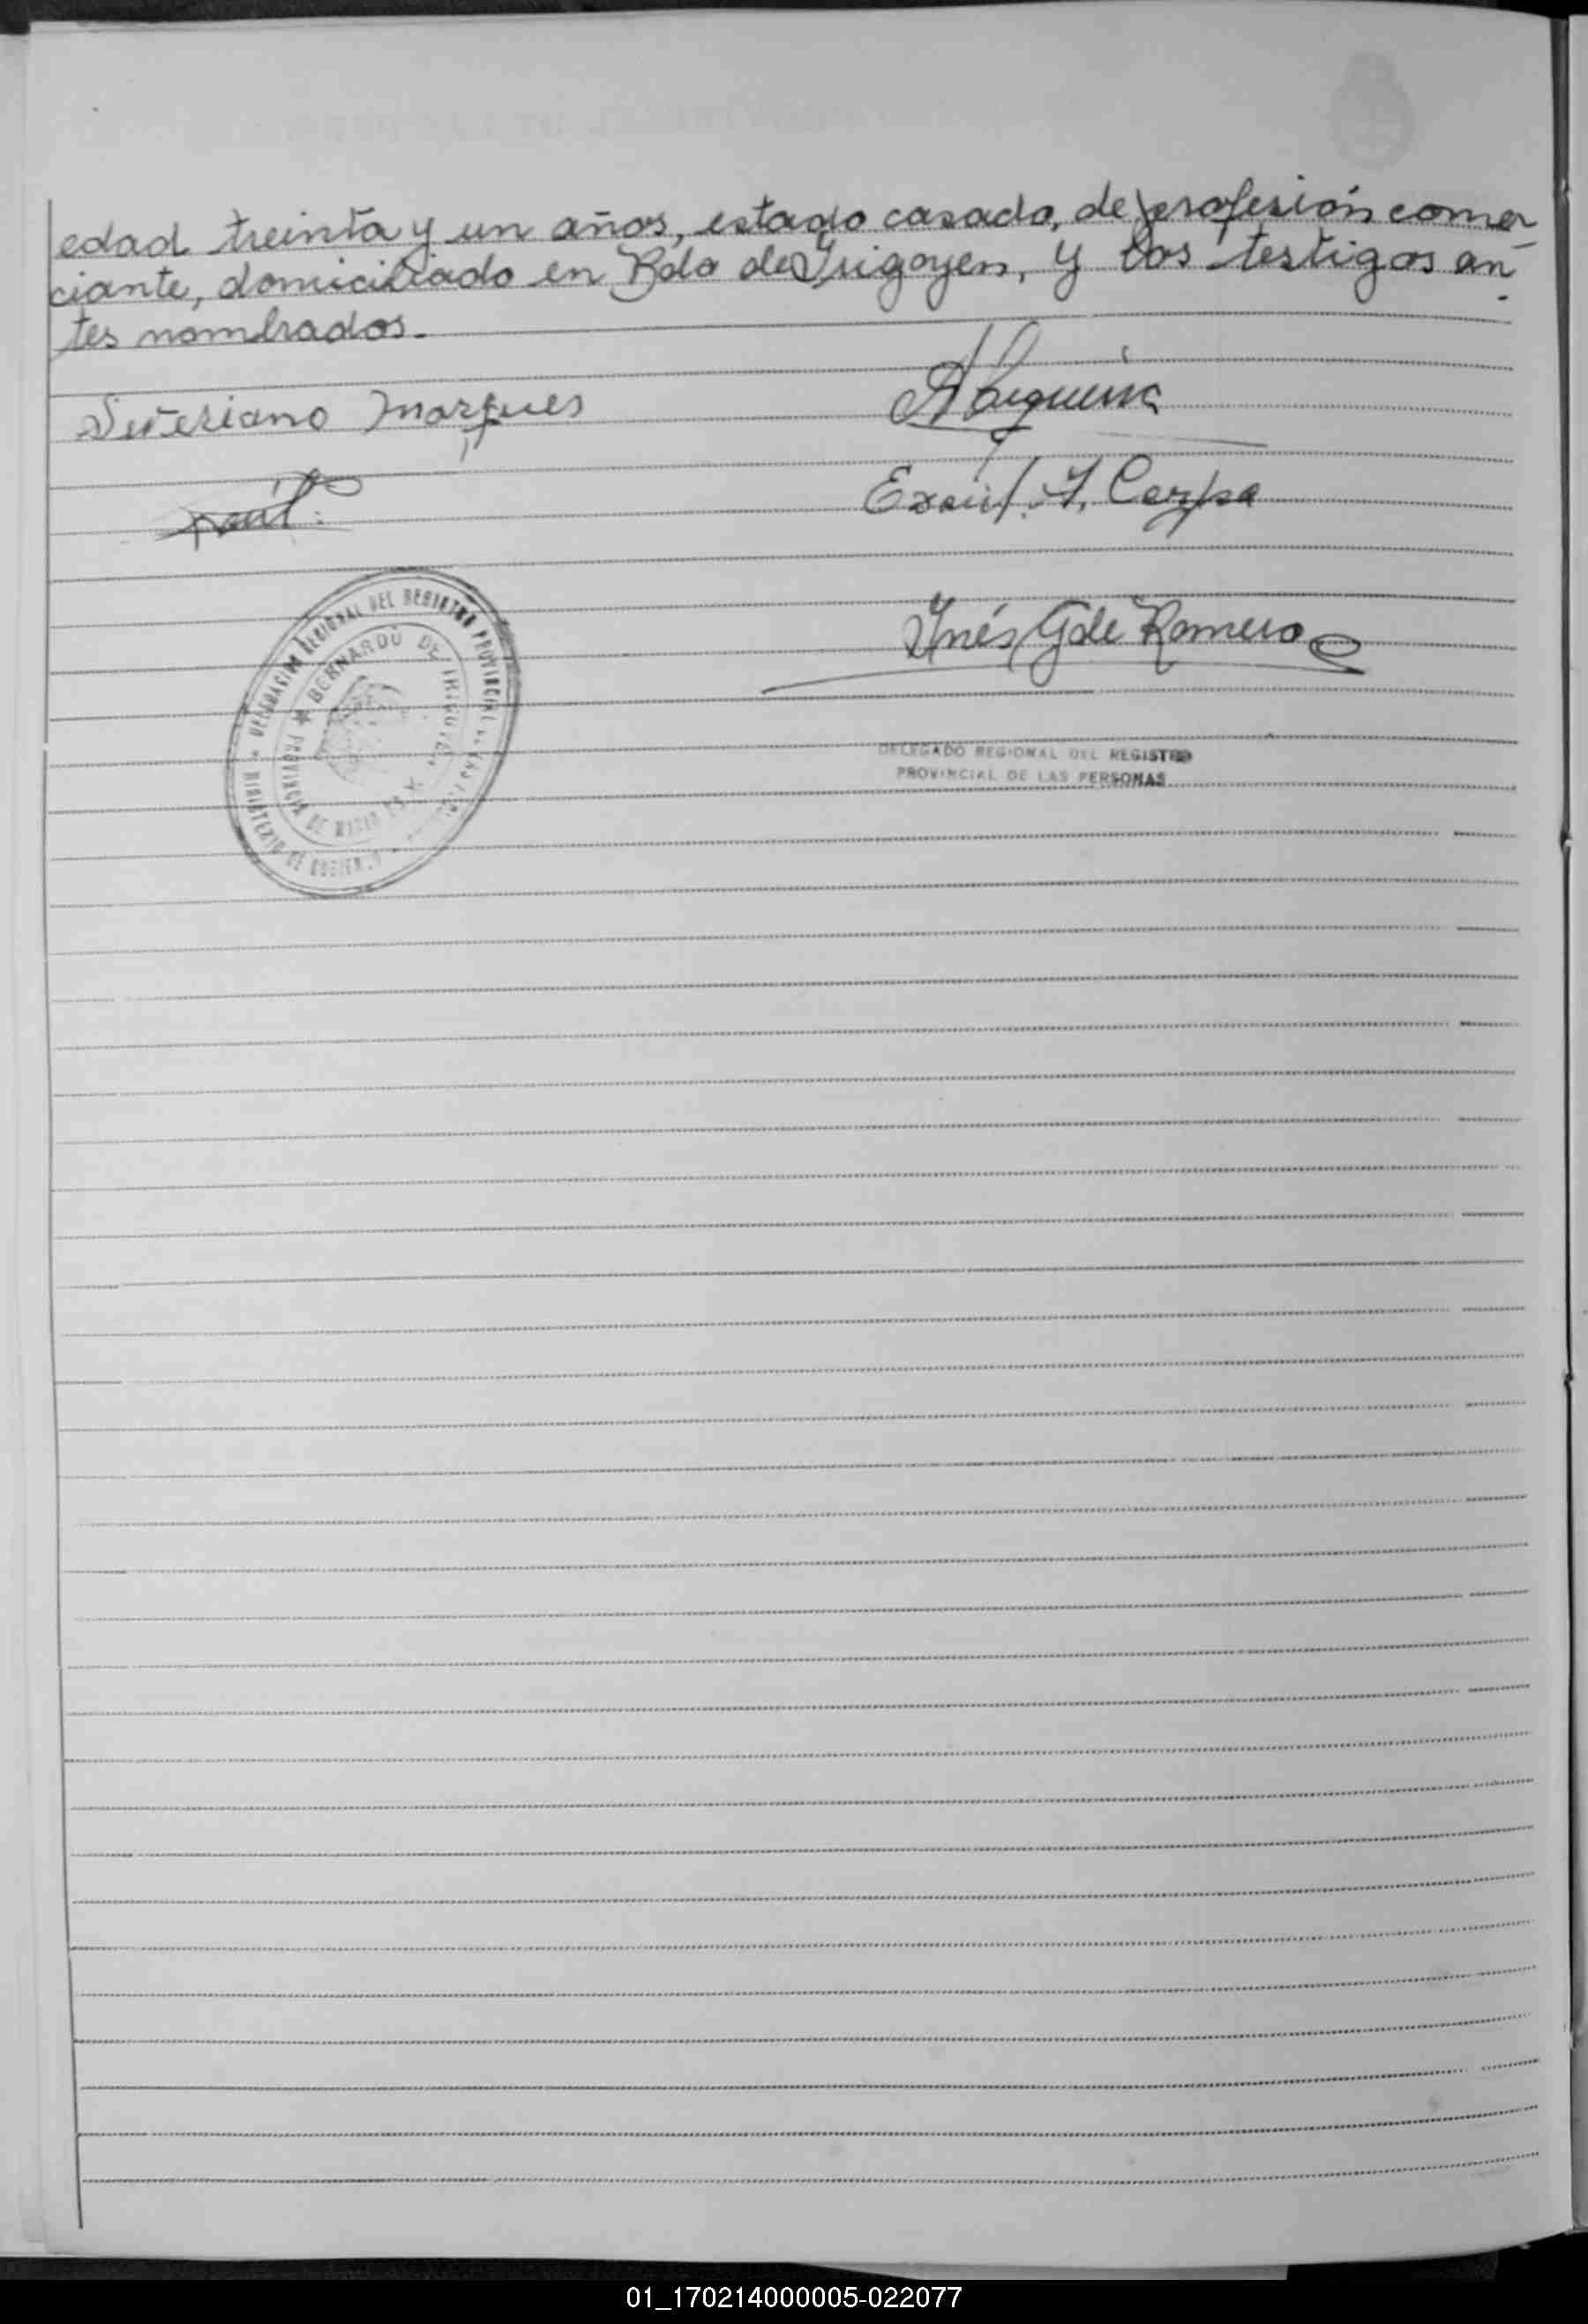 edad treinta y un años, estado casado, de profesión comer
ciante, domiciliado en Bdo de Irigoyen, y los testigos an-
tes nombrados.-
Severiano Marques
Exaúl. A. Carpa
Inés G de Romero
DELEGACION REGIONAL DEL REGISTRO PROVINCIAL
MINISTERIO DE GOBIERNO
BERNARDO DE IRIGOYEN
PROVINCIA DE MISIONES
DELEGADO REGIONAL DEL REGISTRO
PROVINCIAL DE LAS PERSONAS
01_170214000005-022077